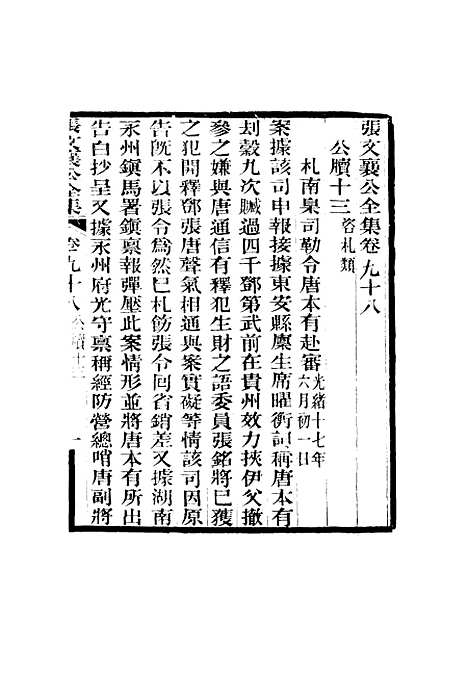 張文襄公全集卷九十八
公牘十三 咨札類
札南臬司勒令唐本有赴審 光緒十七年六月初一日
案據該司申報接據東安縣廩生席曜衡詞稱唐本有
刦穀九次贓過四千鄧第武前在貴州效力挾伊父撤
參之嫌與唐通信有釋犯生財之語委員張銘將已獲
之犯開釋鄧張唐聲氣相通與案實礙等情該司因原
告旣不以張令爲然已札飭張令囘省銷差又據湖南
永州鎭馬署鎭稟報彈壓此案情形並將唐本有所出
告白抄呈又據永州府光守稟稱經防營總哨唐副將
張文襄公全集 卷九十八 公牘十三 一